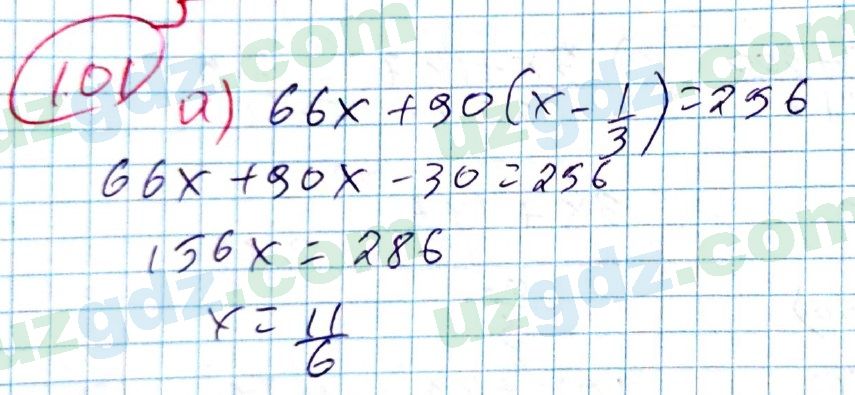 1.01
a) 66x + 90(x - 1/3) = 256
66x + 90x - 30 = 256
156x = 286
x = 11/6
uzgdz.com
uzgdz.com
uzgdz.com
uzgdz.com